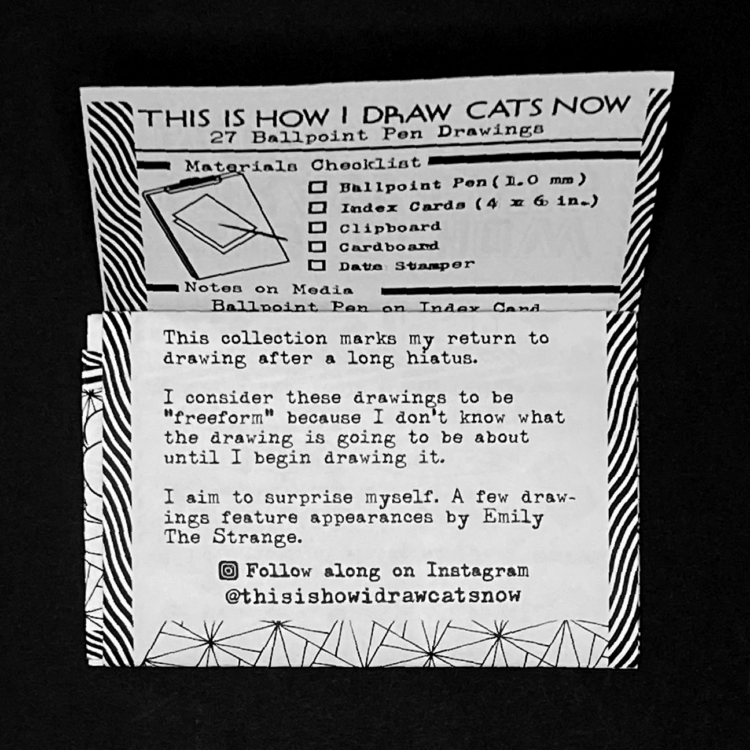 THIS IS HOW I DRAW CATS NOW
27 Ballpoint Pen Drawings
Materials Checklist
Ballpoint Pen (1.0 mm)
Index Cards (4 x 6 in.)
Clipboard
Cardboard
Date Stamper
Notes on Media
Ballpoint Pen on Index Card
This collection marks my return to
drawing after a long hiatus.
I consider these drawings to be
"freeform" because I don't know what
the drawing is going to be about
until I begin drawing it.
I aim to surprise myself. A few draw-
ings feature appearances by Emily
The Strange.
Follow along on Instagram
@thisishowidrawcatsnow